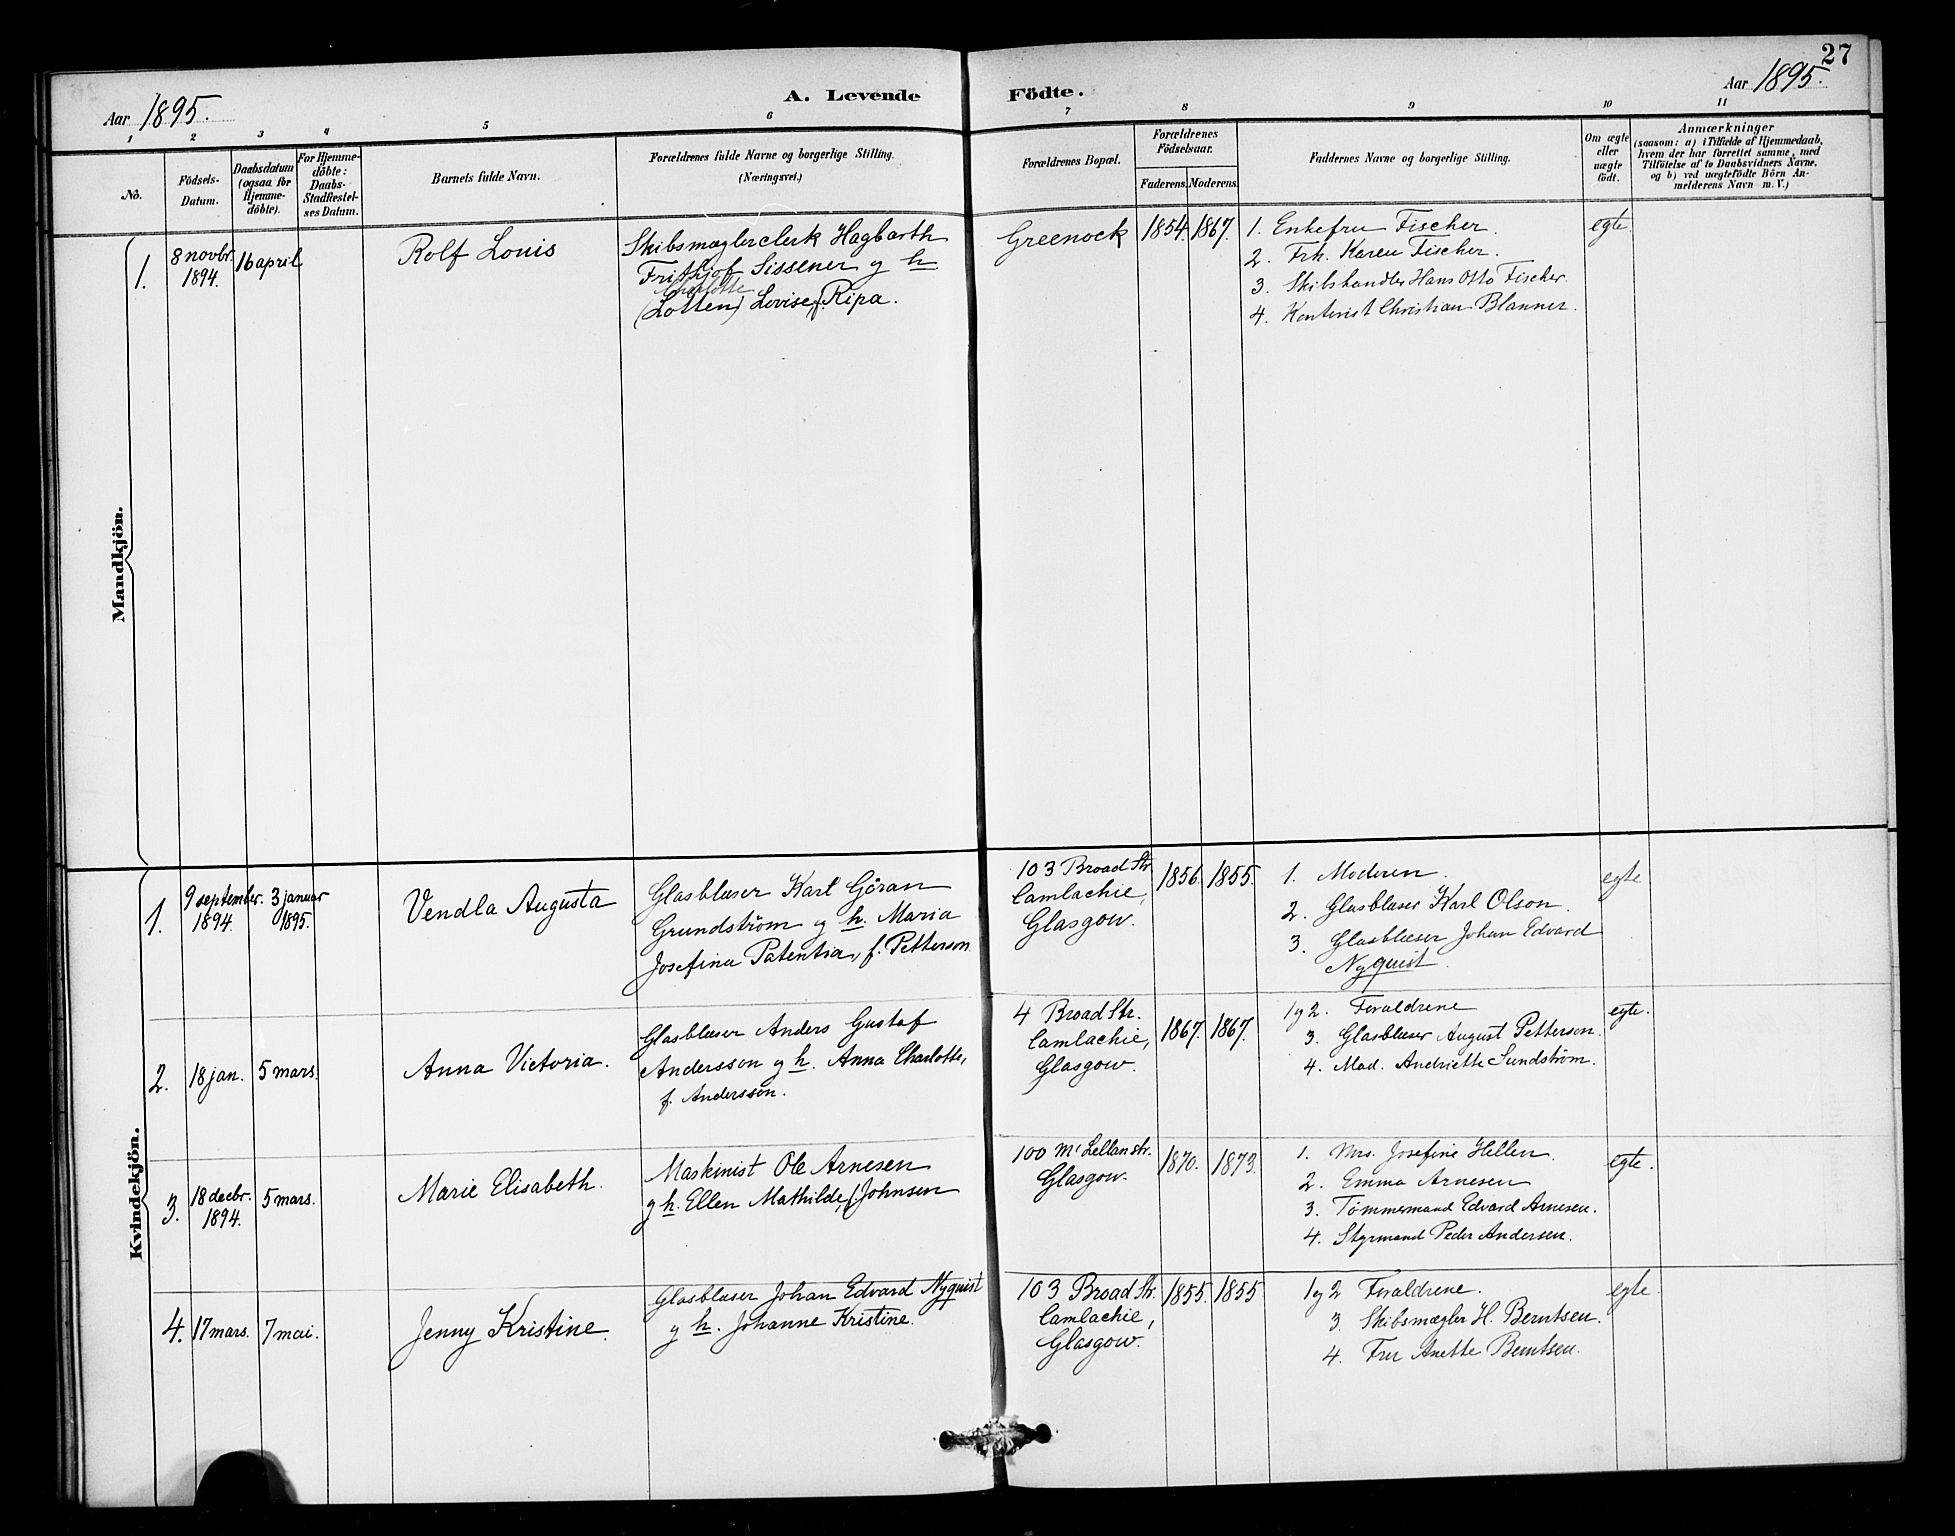 27
Aar 1895.
A. Levende Födte.
Aar 1895.
1 2 3 4 5 6 7 8 9 10 11
No.
Födsels-
Datum.
Daabsdatum
(ogsaa for
Hjemme-
döbte).
For Hjemme-
döbte:
Daabs-
Stadfæstel-
ses Datum.
Barnets fulde Navn.
Forældrenes fulde Navne og borgerlige Stilling.
(Næringsvei.)
Forældrenes Bopæl.
Forældrenes
Födselsaar.
Faderens. Moderens.
Faddernes Navne og borgerlige Stilling.
Om ægte
eller
uægte
födt.
Anmærkninger
(saasom: a) i Tilfælde af Hjemmedaab,
hvem der har forrettet samme, med
Tilföielse af to Daabsvidners Navne,
og b) ved uægtefödte Börn An-
melderens Navn m. V.)
Mandkjön.
1.
8 novbr.
1894.
16 april
Rolf Louis
Skibsmæglerclerk Hagbarth
Frithjof Sissener og h
Charlotte
(Lotten) Lovise, f. Ripa.
Greenock
1854. 1867.
1. Enkefru Fischer.
2. Frk. Karen Fischer.
3. Skibshandler Hans Otto Fischer.
4. Kontorist Christian Blanner.
egte
Kvindekjön.
1.
9 september.
1894.
3 januar
1895.
Vendla Augusta
Glasblæser Karl Göran
Grundström og h. Maria
Josefina Patentia, f. Petterson.
103 Broad Str.
Camlachie,
Glasgow.
1856. 1855.
1. Moderen.
2. Glasblæser Karl Olson.
3. Glasblæser Johan Edvard
Nyquist.
egte
2.
18 jan.
5 mars.
Anna Victoria.
Glasblæser Anders Gustaf
Andersson og h. Anna Charlotte,
f. Andersson.
4 Broad Str.
Camlachie,
Glasgow.
1867. 1867.
1 og 2. Forældrene
3. Glasblæser August Petterson.
4. Mad. Andriette Sundstrøm.
egte.
3.
18 decbr.
1894.
5 mars.
Marie Elisabeth.
Maskinist Ole Arnesen
og h. Ellen Mathilde, f. Johnsen
100 McLellan str.
Glasgow.
1870. 1873.
1. Mrs. Josefine Hellen.
2. Emma Arnesen
3. Tømmermand Edvard Arnesen.
4. Styrmand Peder Andersen.
egte.
4.
17 mars.
7 mai.
Jenny Kristine.
Glasblæser Johan Edvard Nyquist
og h. Johanne Kristine.
103 Broad Str.
Camlachie,
Glasgow.
1855. 1855
1 og 2 Forældrene.
3. Skibsmægler H. Berntsen.
4. Fru Anette Berntsen.
egte.